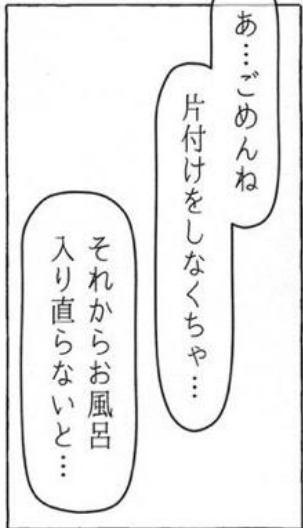 あ…ごめんね
片付けをしなくちゃ…
それからお風呂
入り直らないと…